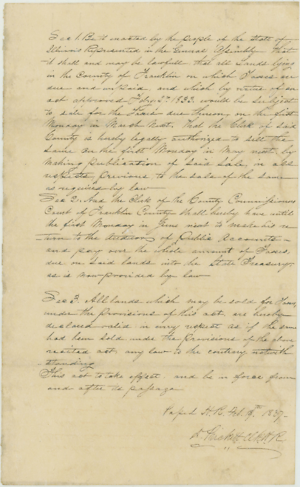 Sec 1. Be it enacted by the people of the State of
Illinois Represented in the General Assembly that
it shall and may be lawfull that all Lands lying
in the County of Franklin on which Taxes are
due and unpaid and which by virtue of an
act approved Feby 27 1833. would be Subject
to sale for the Taxes due thereon on the first
Monday in March Next. that the Clerk of said
County is hereby legally authorized to sell the
same on the first Monday in May next, by
making publication of said Sale, in all
respects previous to the sale of the same
as required by law
Sec 2. And the Clerk of the County Commissioners
Court of Franklin County shall hereby have until
the first Monday in June next to make his re-
turn to the Auditor of Public Accounts
and pay over the whole amount of Taxes
due on said lands into the State Treasury
as is now provided by law
Sec 3. All lands which may be sold for Taxes
under the Provisions of this act, are hereby
declared valid in every respect as if the same
had been sold under the Provisions of the above
recited act any law to the contrary notwith
standing
This act to take effect and be in force from
and after its passage
Passed H.R. Feb. 9th 1837.